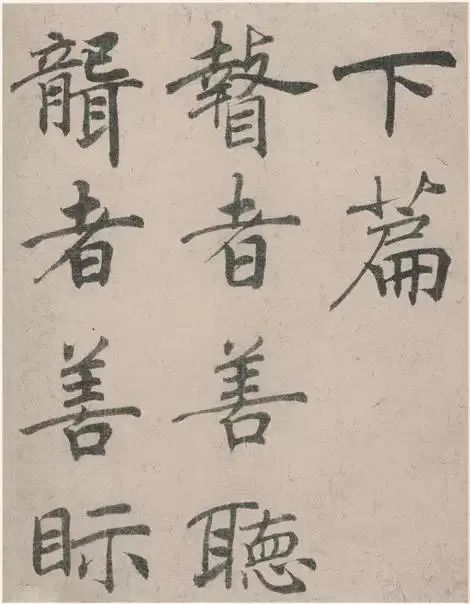 下篇
瞽者善聽
聾者善眎